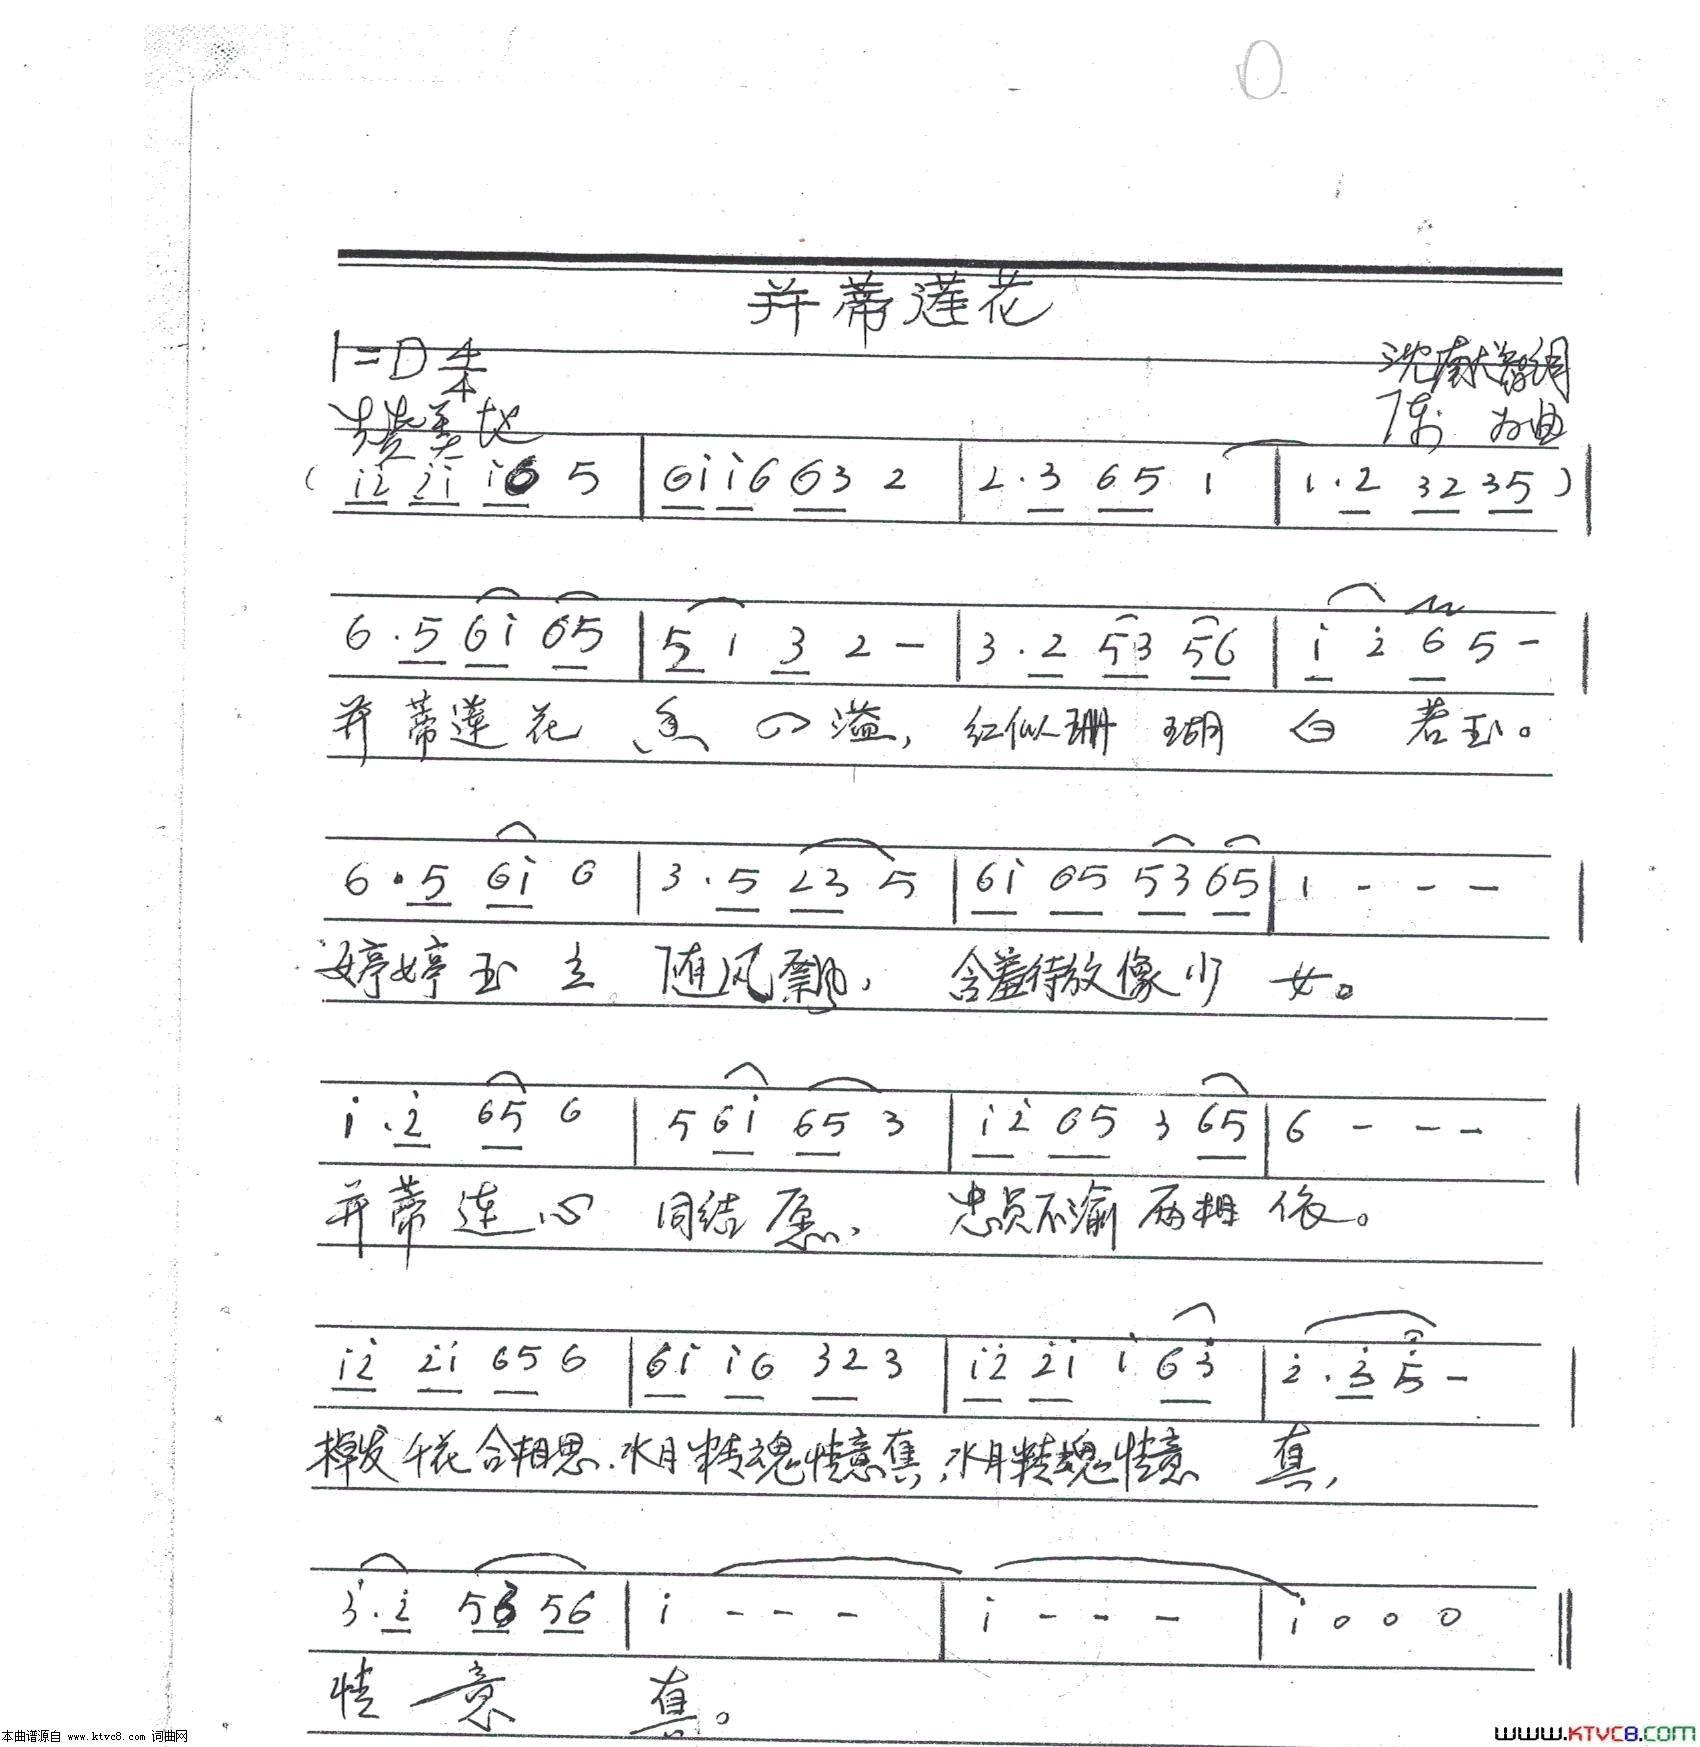 并蒂莲花
1=D 4/4
赞美地
陈 曲
( i̇2̇ 2̇i̇ i̇6 5 | 6i̇ i̇6 63 2 | 2·3 65 1 | 1·2 32 35 ) |
6·5 6i̇ 65 | 5 1 3 2 - | 3·2 53 56 | i̇ 2̇ 6 5 - |
并蒂莲花 香 四溢, 红似珊 瑚 白 若玉。
6·5 6i̇ 6 | 3·5 23 5 | 6i̇ 65 53 65 | 1 - - - |
婷婷玉立 随风飘, 含羞待放像少 女。
i̇·2̇ 65 6 | 5 6i̇ 65 3 | i̇2̇ 65 3 65 | 6 - - - |
并蒂连心 同结愿, 忠贞不渝两相 依。
i̇2̇ 2̇i̇ 65 6 | 6i̇ i̇6 32 3 | i̇2̇ 2̇i̇ i̇ 63̇ | 2̇·3̇ 5̇ - |
发千花含相思, 水月精魂情意真, 水月精魂情意 真,
3̇·2̇ 53 56 | i̇ - - - | i̇ - - - | i̇ 0 0 0 ||
情 意 真。
本曲谱源自 www.ktvc8.com 词曲网
WWW.KTVC8.COM